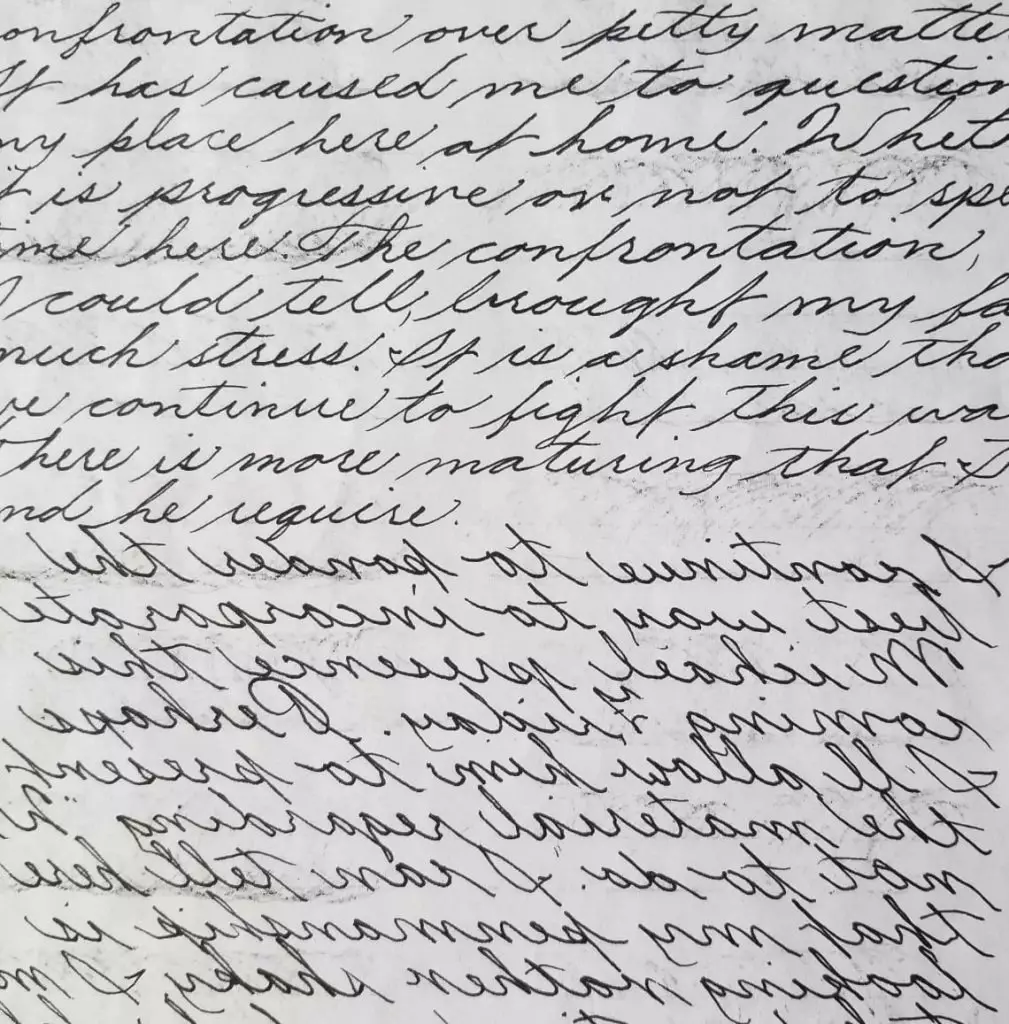 onfrontation over petty matte
It has caused me to question
my place here at home. Whet
it is progressive or not to spe
ime here. The confrontation,
I could tell, brought my fa
much stress. It is a shame tha
we continue to fight this wa
there is more maturing that I
nd he require.
I continue to ponder the
best way to incorporate
Michael presence this
coming Friday. Perhaps
I'll allow him to present
the material regarding
not to do. I can tell here
that my penmanship is
looking rather shaky. I